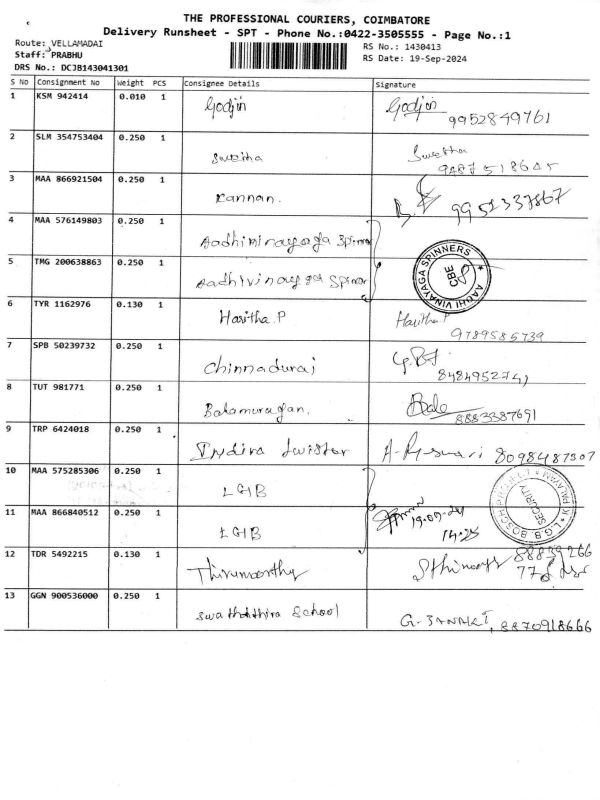 THE PROFESSIONAL COURIERS, COIMBATORE
Delivery Runsheet - SPT - Phone No.:0422-3505555 - Page No.:1
Route: VELLAMADAI
RS No.: 1430413
Staff: PRABHU
RS Date: 19-Sep-2024
DRS No.: DCJB143041301
S No Consignment No Weight PCS Consignee Details Signature
1 KSM 942414 0.010 1 Godjin Godjin
9952849761
2 SLM 354753404 0.250 1 Swetha Swetha
3 MAA 866921504 0.250 1 Kannan. 9952337867
4 MAA 576149803 0.250 1 Aadhivinayaga Spinner
AADHI VINAYAGA SPINNERS
CBE
5 TMG 200638863 0.250 1 Aadhivinayaga Spinner
6 TYR 1162976 0.130 1 Haritha.P Haritha.P
9789585739
7 SPB 50239732 0.250 1 Chinnadurai
8 TUT 981771 0.250 1 Balamurugan. Bala
8883387691
9 TRP 6424018 0.250 1 Indira 8098487307
10 MAA 575285306 0.250 1 LGB
SECURITY
11 MAA 866840512 0.250 1 LGB 19-09-24
14:25
12 TDR 5492215 0.130 1 Thirumoorthy
13 GGN 900536000 0.250 1 School G. JANAKI, 8870918666